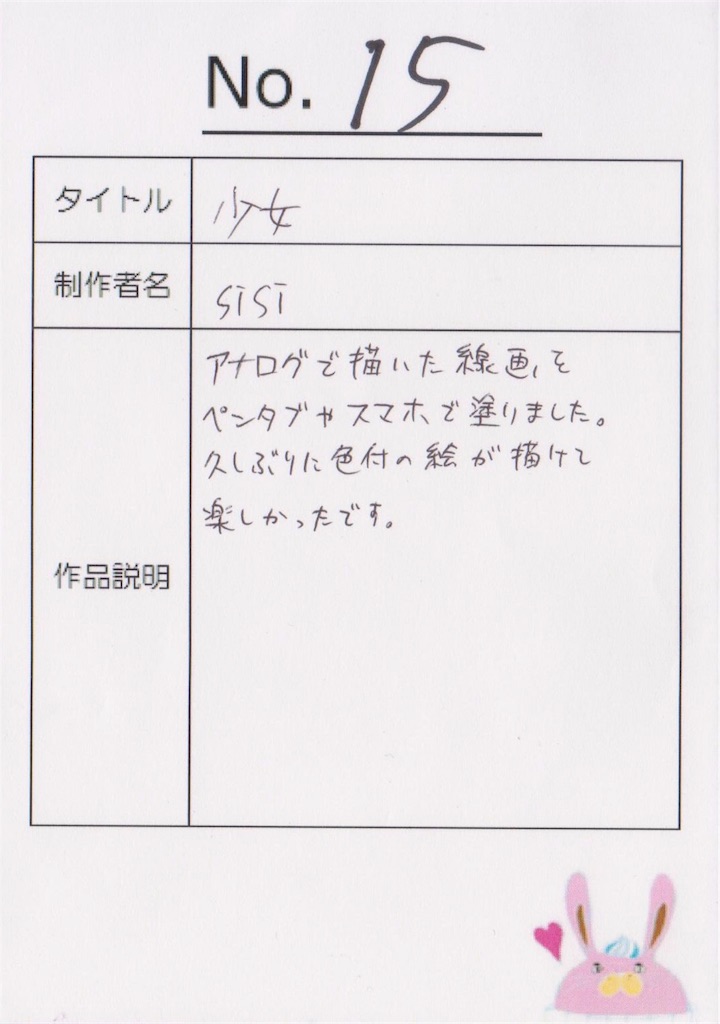 No. 15
タイトル
少女
制作者名
sisi
作品説明
アナログで描いた線画を
ペンタブやスマホで塗りました。
久しぶりに色付の絵が描けて
楽しかったです。